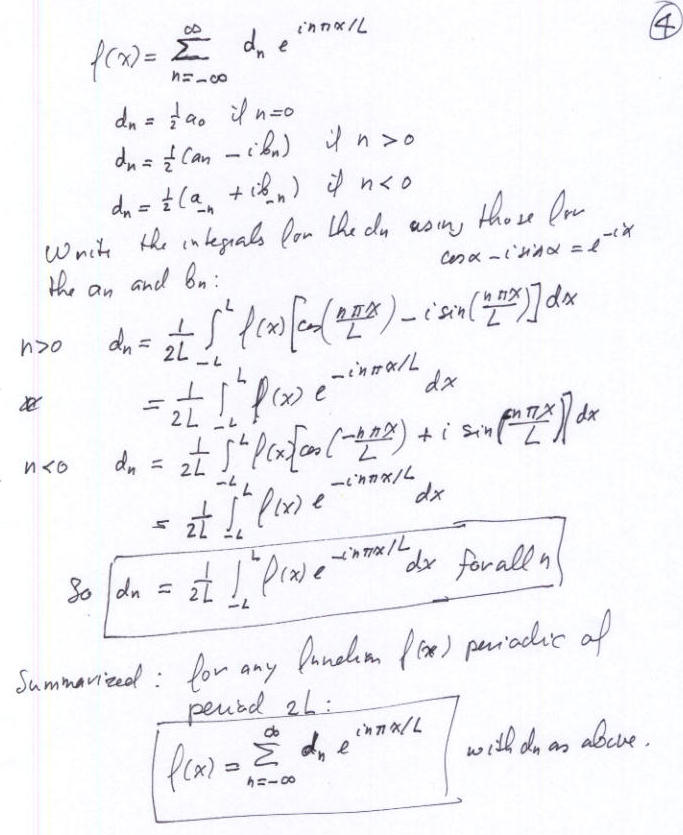 ④
f(x) = ∑_{n=-∞}^{∞} d_n e^{inπx/L}
d_n = ½ a_0 if n=0
d_n = ½ (a_n - i b_n) if n > 0
d_n = ½ (a_{-n} + i b_{-n}) if n < 0
Write the integrals for the d_n using those for
the a_n and b_n: cos α - i sin α = e^{-iα}
n>0 d_n = 1/2L ∫_{-L}^{L} f(x) [cos(nπx/L) - i sin(nπx/L)] dx
= 1/2L ∫_{-L}^{L} f(x) e^{-inπx/L} dx
n<0 d_n = 1/2L ∫_{-L}^{L} f(x) [cos(-nπx/L) + i sin(-nπx/L)] dx
= 1/2L ∫_{-L}^{L} f(x) e^{-inπx/L} dx
So d_n = 1/2L ∫_{-L}^{L} f(x) e^{-inπx/L} dx for all n
Summarized: for any function f(x) periodic of
period 2L:
f(x) = ∑_{n=-∞}^{∞} d_n e^{inπx/L} with d_n as above.